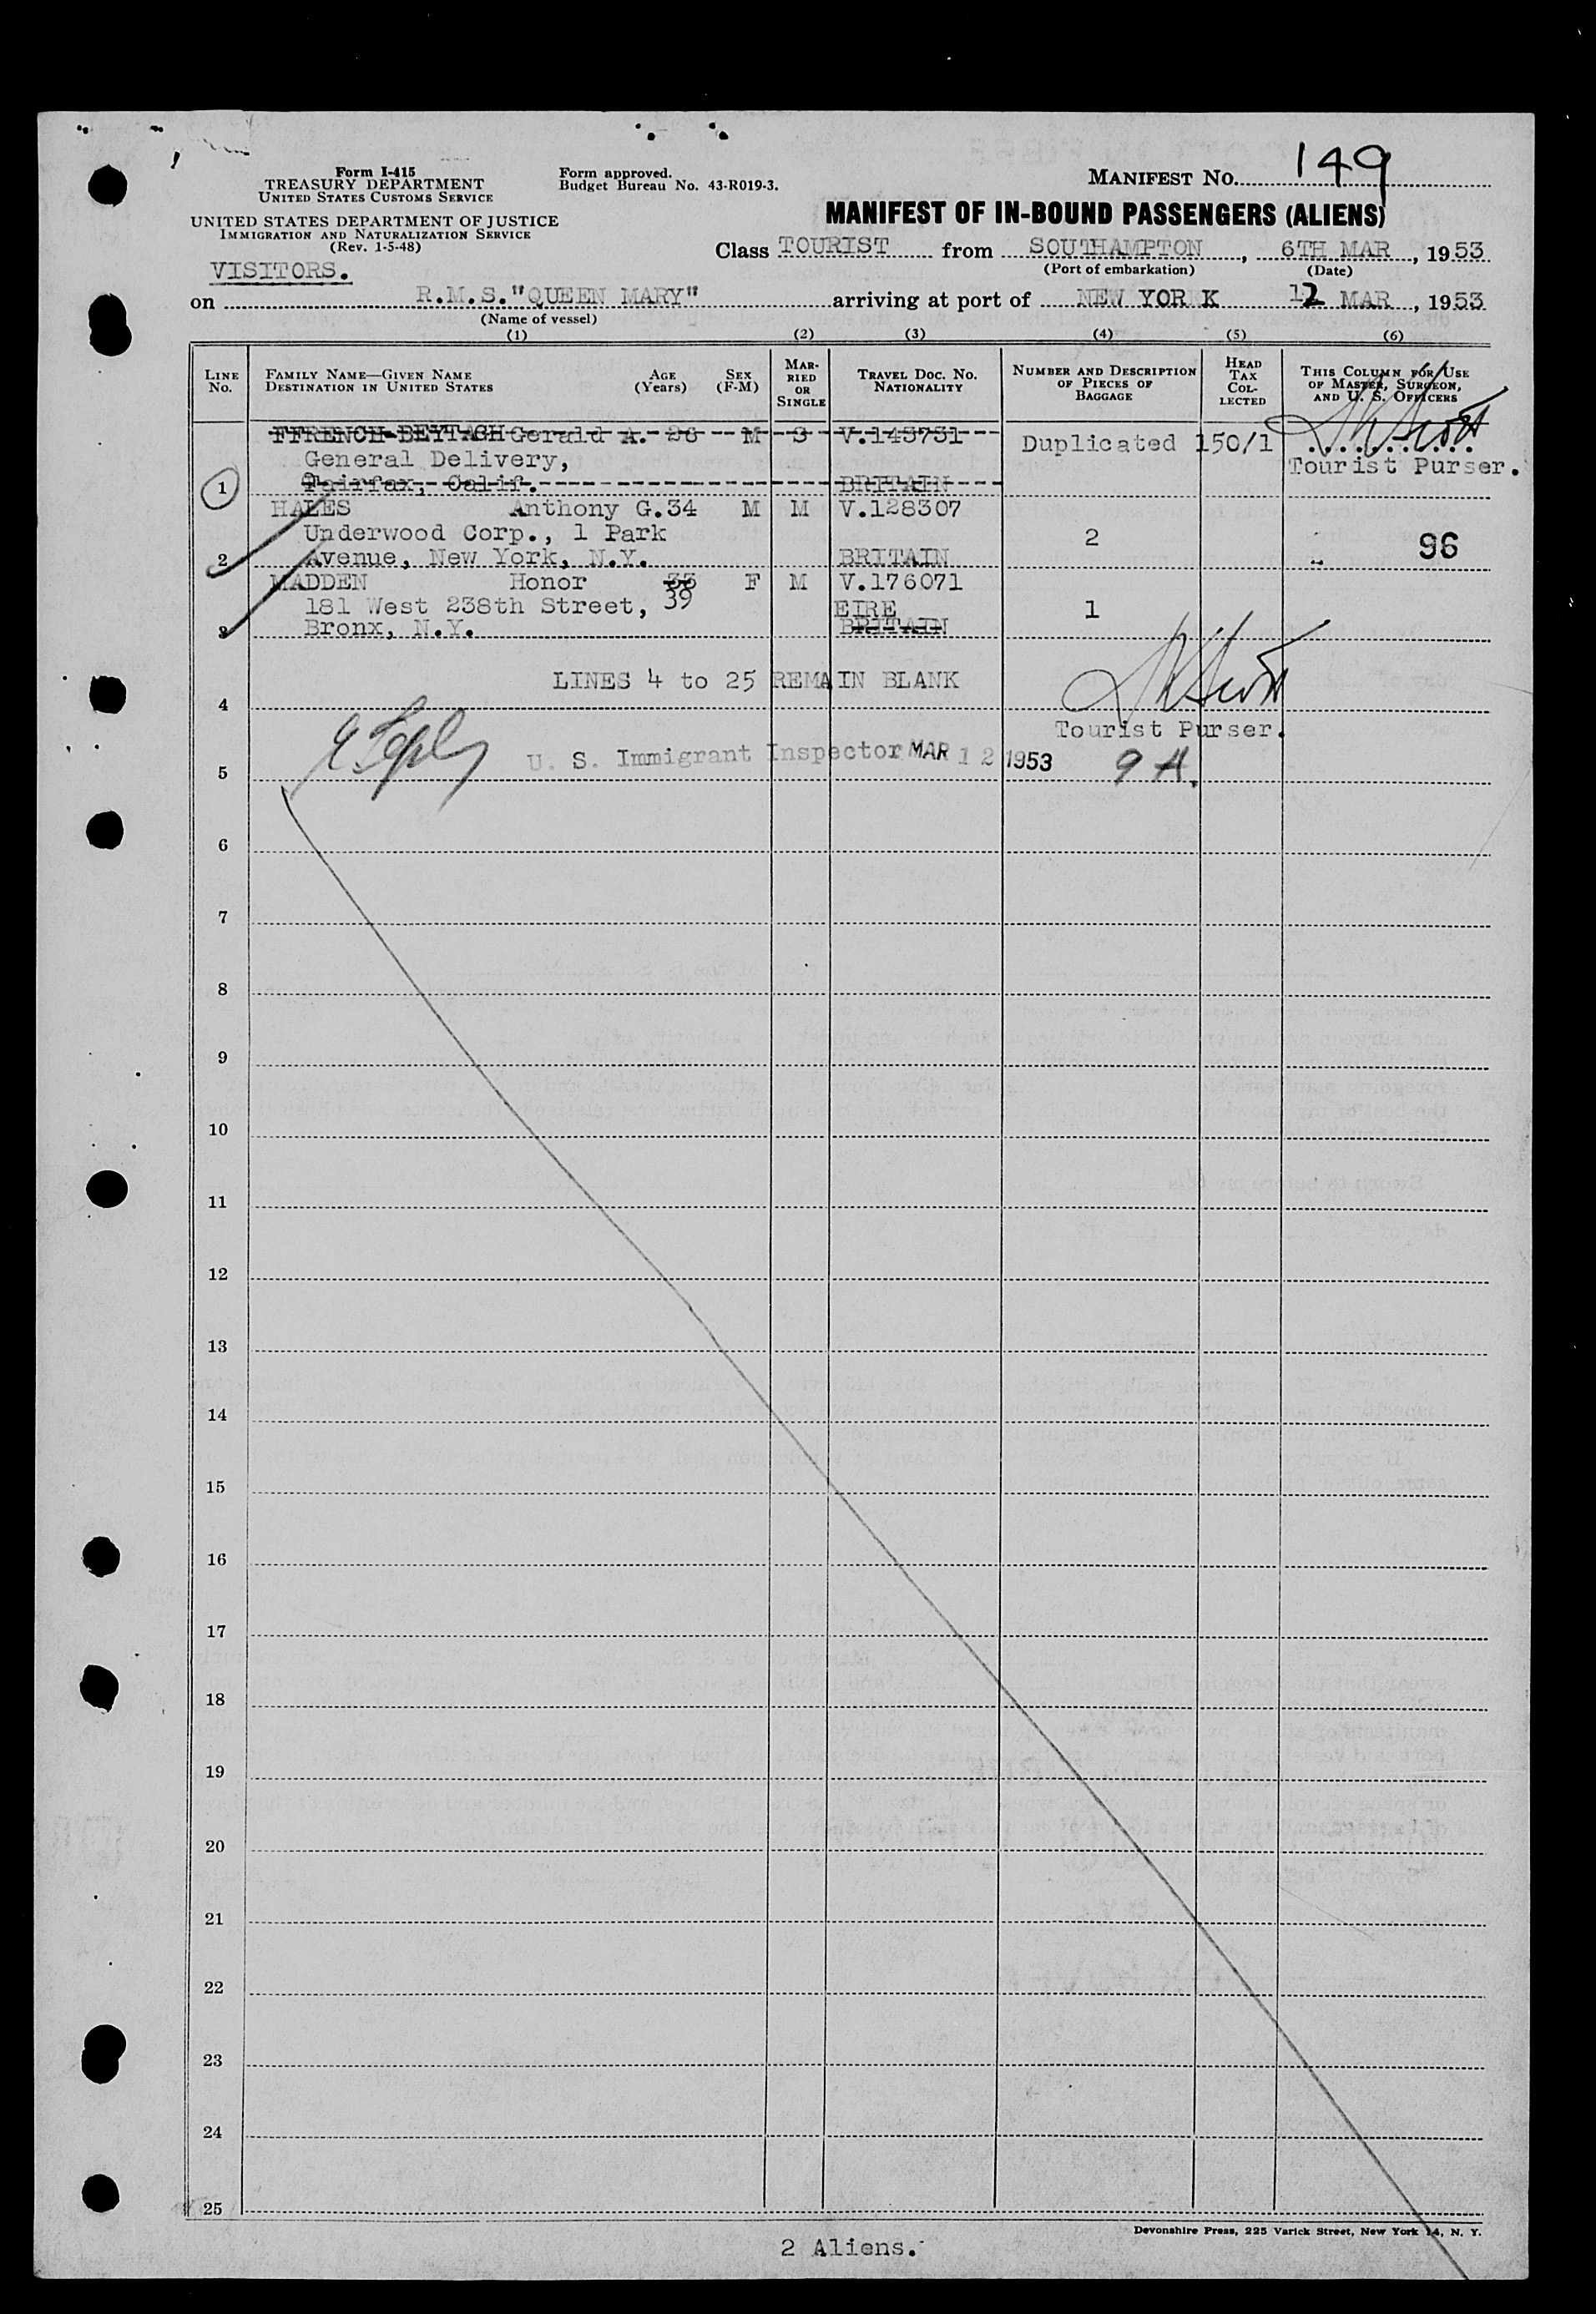 Form I-415
TREASURY DEPARTMENT
UNITED STATES CUSTOMS SERVICE
UNITED STATES DEPARTMENT OF JUSTICE
IMMIGRATION AND NATURALIZATION SERVICE
(Rev. 1-5-48)
Form approved.
Budget Bureau No. 43-R019-3.
MANIFEST NO. 149
MANIFEST OF IN-BOUND PASSENGERS (ALIENS)
Class TOURIST from SOUTHAMPTON, 6TH MAR, 1953
(Port of embarkation) (Date)
VISITORS.
on R.M.S."QUEEN MARY" arriving at port of NEW YORK 12 MAR, 1953
(Name of vessel)
(1) (2) (3) (4) (5) (6)
LINE NO.
FAMILY NAME—GIVEN NAME
DESTINATION IN UNITED STATES
AGE (Years)
SEX (F-M)
MARRIED OR SINGLE
TRAVEL DOC. NO.
NATIONALITY
NUMBER AND DESCRIPTION OF PIECES OF BAGGAGE
HEAD TAX COLLECTED
THIS COLUMN FOR USE OF MASTER, SURGEON, AND U. S. OFFICERS
FFRENCH-BEYTAGH Gerald A. 26 M S V.143731 Duplicated 150/1
General Delivery, Tourist Purser.
1 Fairfax, Calif. BRITAIN
HALES Anthony G. 34 M M V.128307
Underwood Corp., 1 Park 2 96
2 Avenue, New York, N.Y. BRITAIN
MADDEN Honor 33 F M V.176071
181 West 238th Street, 39 EIRE 1
3 Bronx, N.Y. BRITAIN
LINES 4 to 25 REMAIN BLANK
4
Tourist Purser.
U. S. Immigrant Inspector MAR 12 1953 9 A.
5
6
7
8
9
10
11
12
13
14
15
16
17
18
19
20
21
22
23
24
25
Devonshire Press, 225 Varick Street, New York 14, N. Y.
2 Aliens.